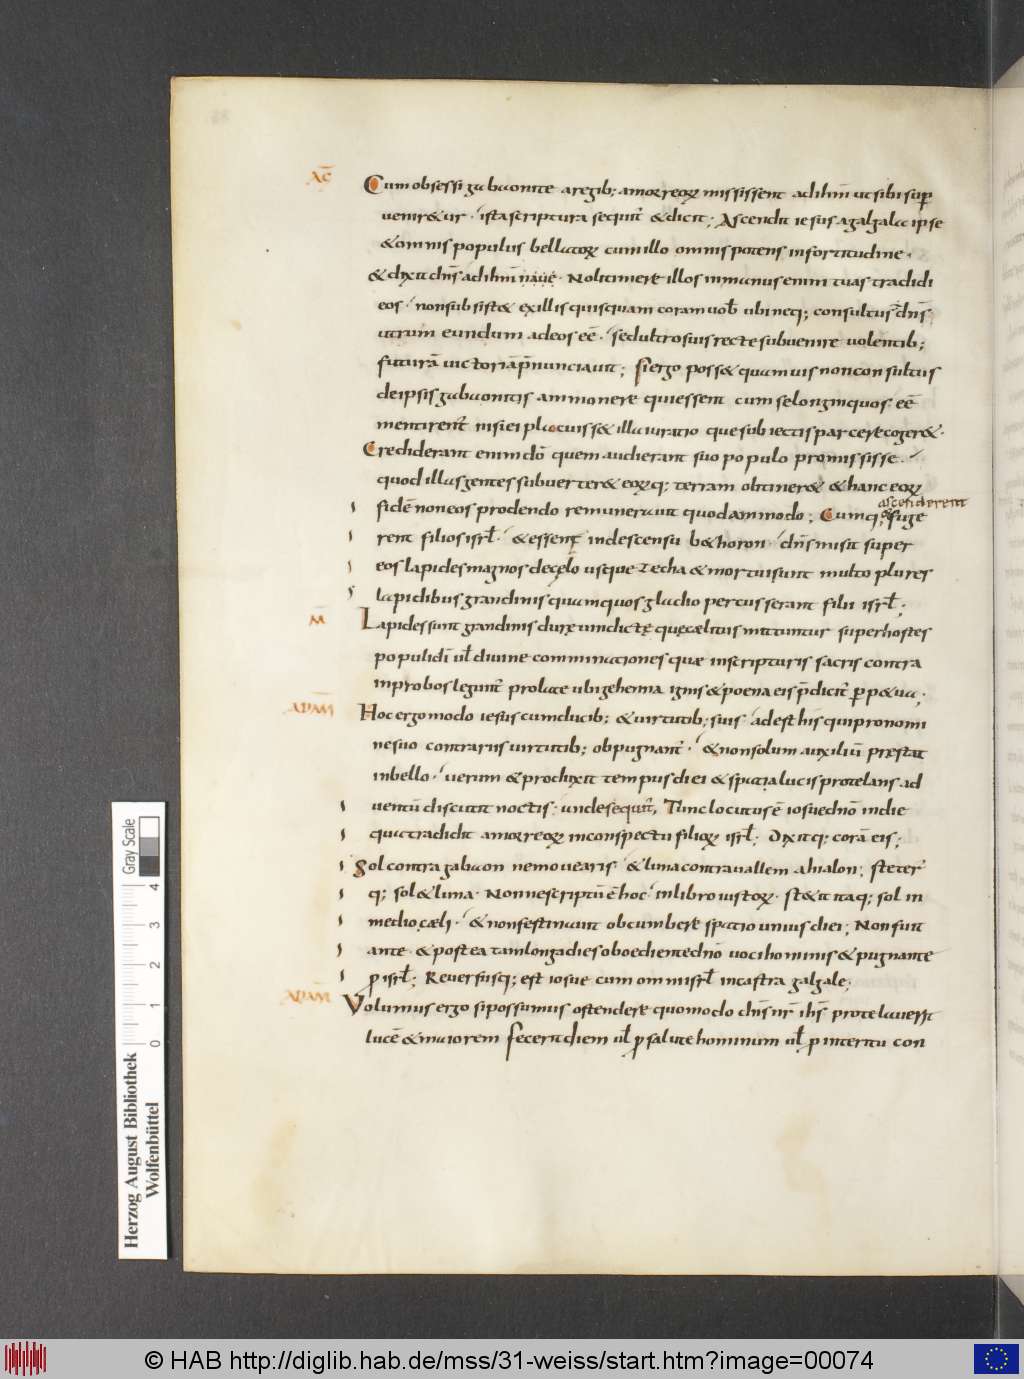 AC̄
Cum obsessi gabaonite a regib; amorreoꝝ misissent ad ihm̄ ut sibi sup̄
veniret&ur · ista scriptura sequit̄ & dicit; Ascendit iesus a galgala ipse
& omnis populus bellatoꝝ cum illo omnis potens in fortitudine ·
& dixit dn̄s ad ihm̄ naue · Noli timere illos in manus enim tuas tradidi
eos · non subsist& ex illis quisquam coram uob̄ ubi neq; consultus dn̄s
utrum eundum ad eos eē · sed ultro suis recte subuenire uolentib;
futurā uictoriā p̄nunciauit; si ergo poss& quamuis non consultus
de ipsis gabaonitis ammonere qui essent cum se longinquos eē
mentirent̄ nisi ei placuiss& illa iuratio que subiectis parcere coger& ·
Crediderant enim dō quem audierant suo populo promississe
quod illus gentes subuerter& eoꝝq; terram obtiner& & hanc eoꝝ
ascenderent
fidē non eos prodendo remunerauit quodammodo; Cumq; fuge
rent filios isrł · & essent in descensu b&horon · dn̄s misit super
eos lapides magnos de cęlo usque Zecha & mortui sunt multo plures
lapidibus grandinis quam quos gladio percusserant filii isrł;
M̄
Lapides sunt grandinis durę uindictę quę cælitus mittuntur super hostes
populi dī uł diuine comminationes quæ in scripturis sacris contra
inprobos legunt̄ prolate ubi gehenna ignis & poena eis p̄dicit̄ ꝑp&ua;
ADAM̄
Hoc ergo modo iesus cum ducib; & uirtutib; suis adest his qui pro nomi
ne suo contrariis uirtutib; obpugnant̄ · & non solum auxiliū pręstat
in bello · uerum & produxit tempus diei & spatia lucis protelans ad
uentū discutit noctis · unde sequit̄, Tunc locutus ē iosue dnō in die
qua tradidit amorreoꝝ in conspectu filioꝝ isrł; Dixitq; corā eis;
Sol contra gabaon ne mouearis · & luna contra uallem ahialon; steter̄
q; sol & luna · Nonne scriptū ē hoc in libro iustoꝝ · st&it itaq; sol in
medio cæli · & non festinauit obcumbere spatio unius diei; Non fuit
ante & postea tam longa dies oboediente dnō uoci hominis & pugnante
ꝓ isrł; Reuersusq; est iosue cum omni isrł in castra galgale;
ADAM̄
Volumus ergo si possumus ostendere quomodo dn̄s nr̄ ihs̄ protelauerit
lucē & maiorem fecerit diem uł ꝓ salute hominum uł ꝓ interitu con
Herzog August Bibliothek
Wolfenbüttel
0 1 2 3 4
Gray Scale
© HAB http://diglib.hab.de/mss/31-weiss/start.htm?image=00074